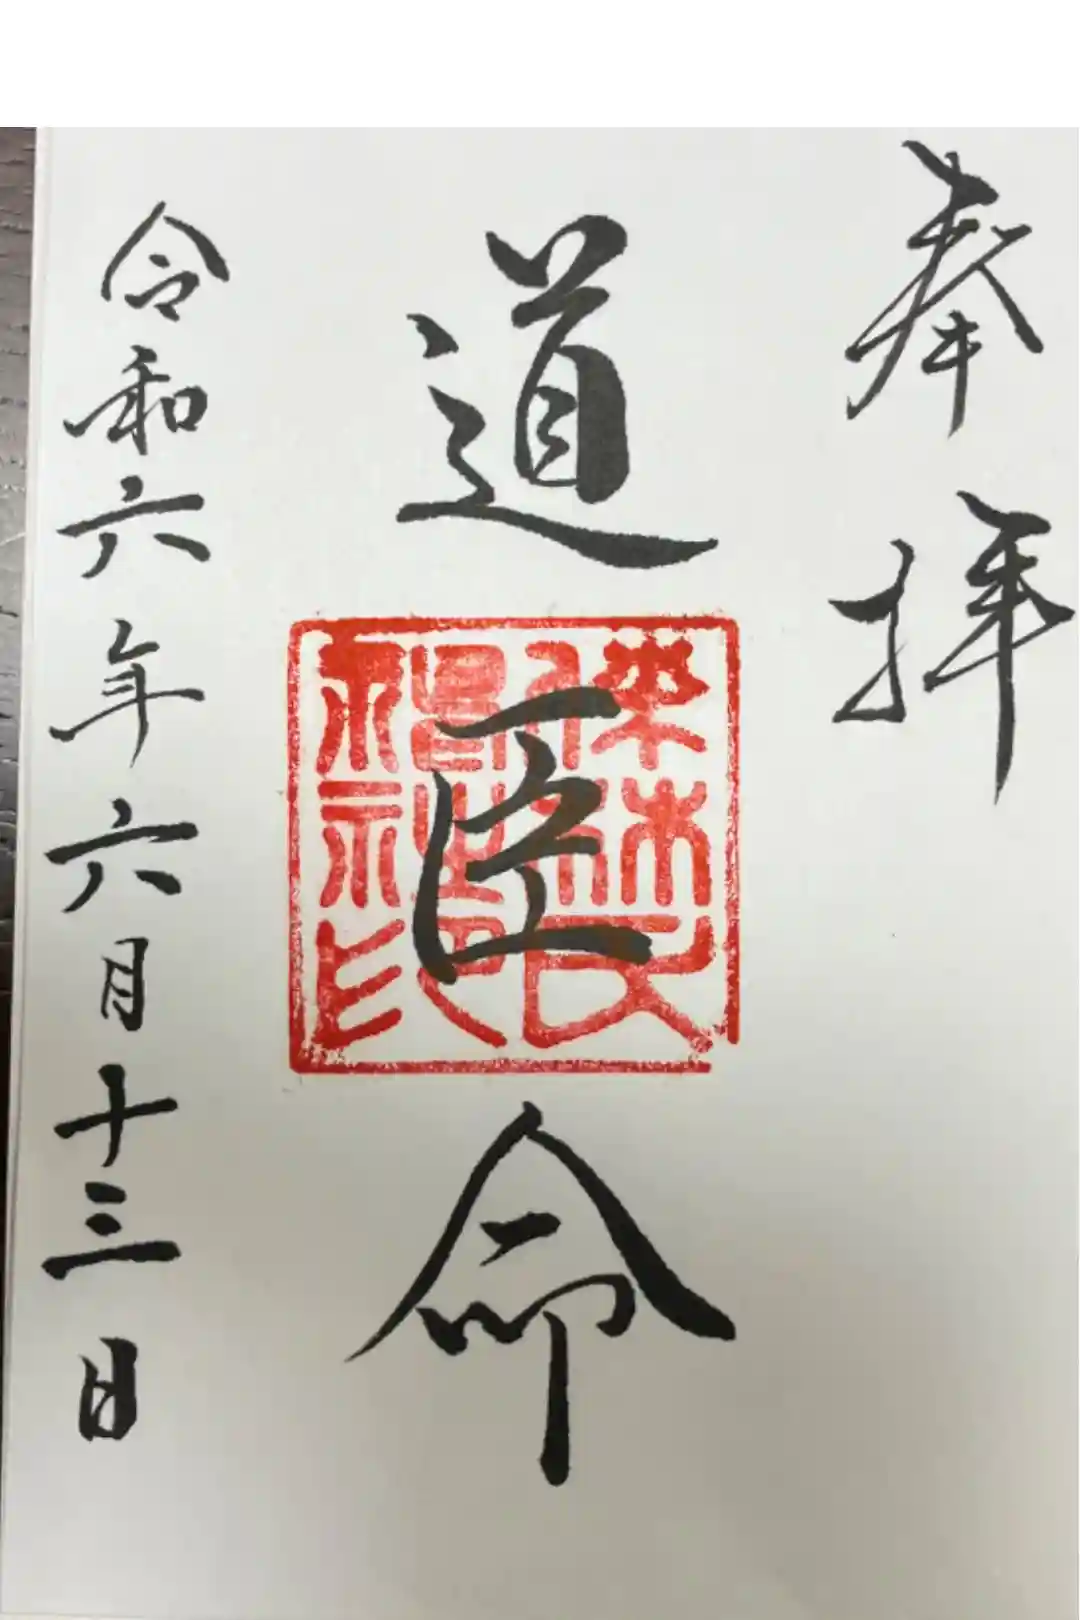 奉拝
道臣命
令和六年六月十三日